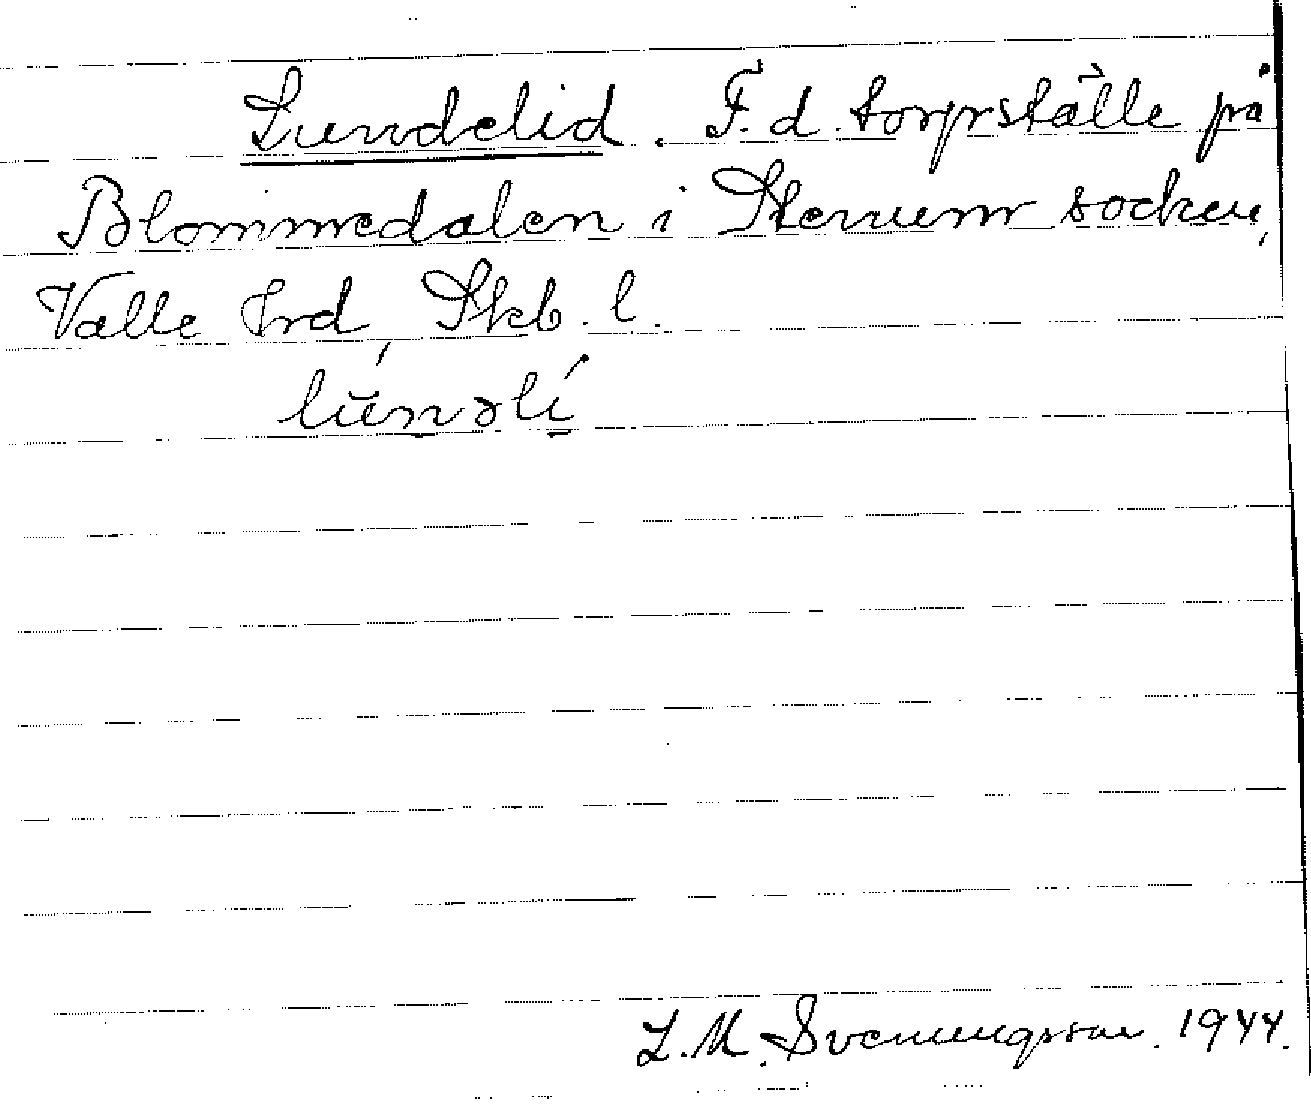 Lundelid. F.d. torpställe på
Blommedalen i Stenum socken,
Valle hrd, Skb. l.
lúnəlí
L.M. Svenungsson. 1944.